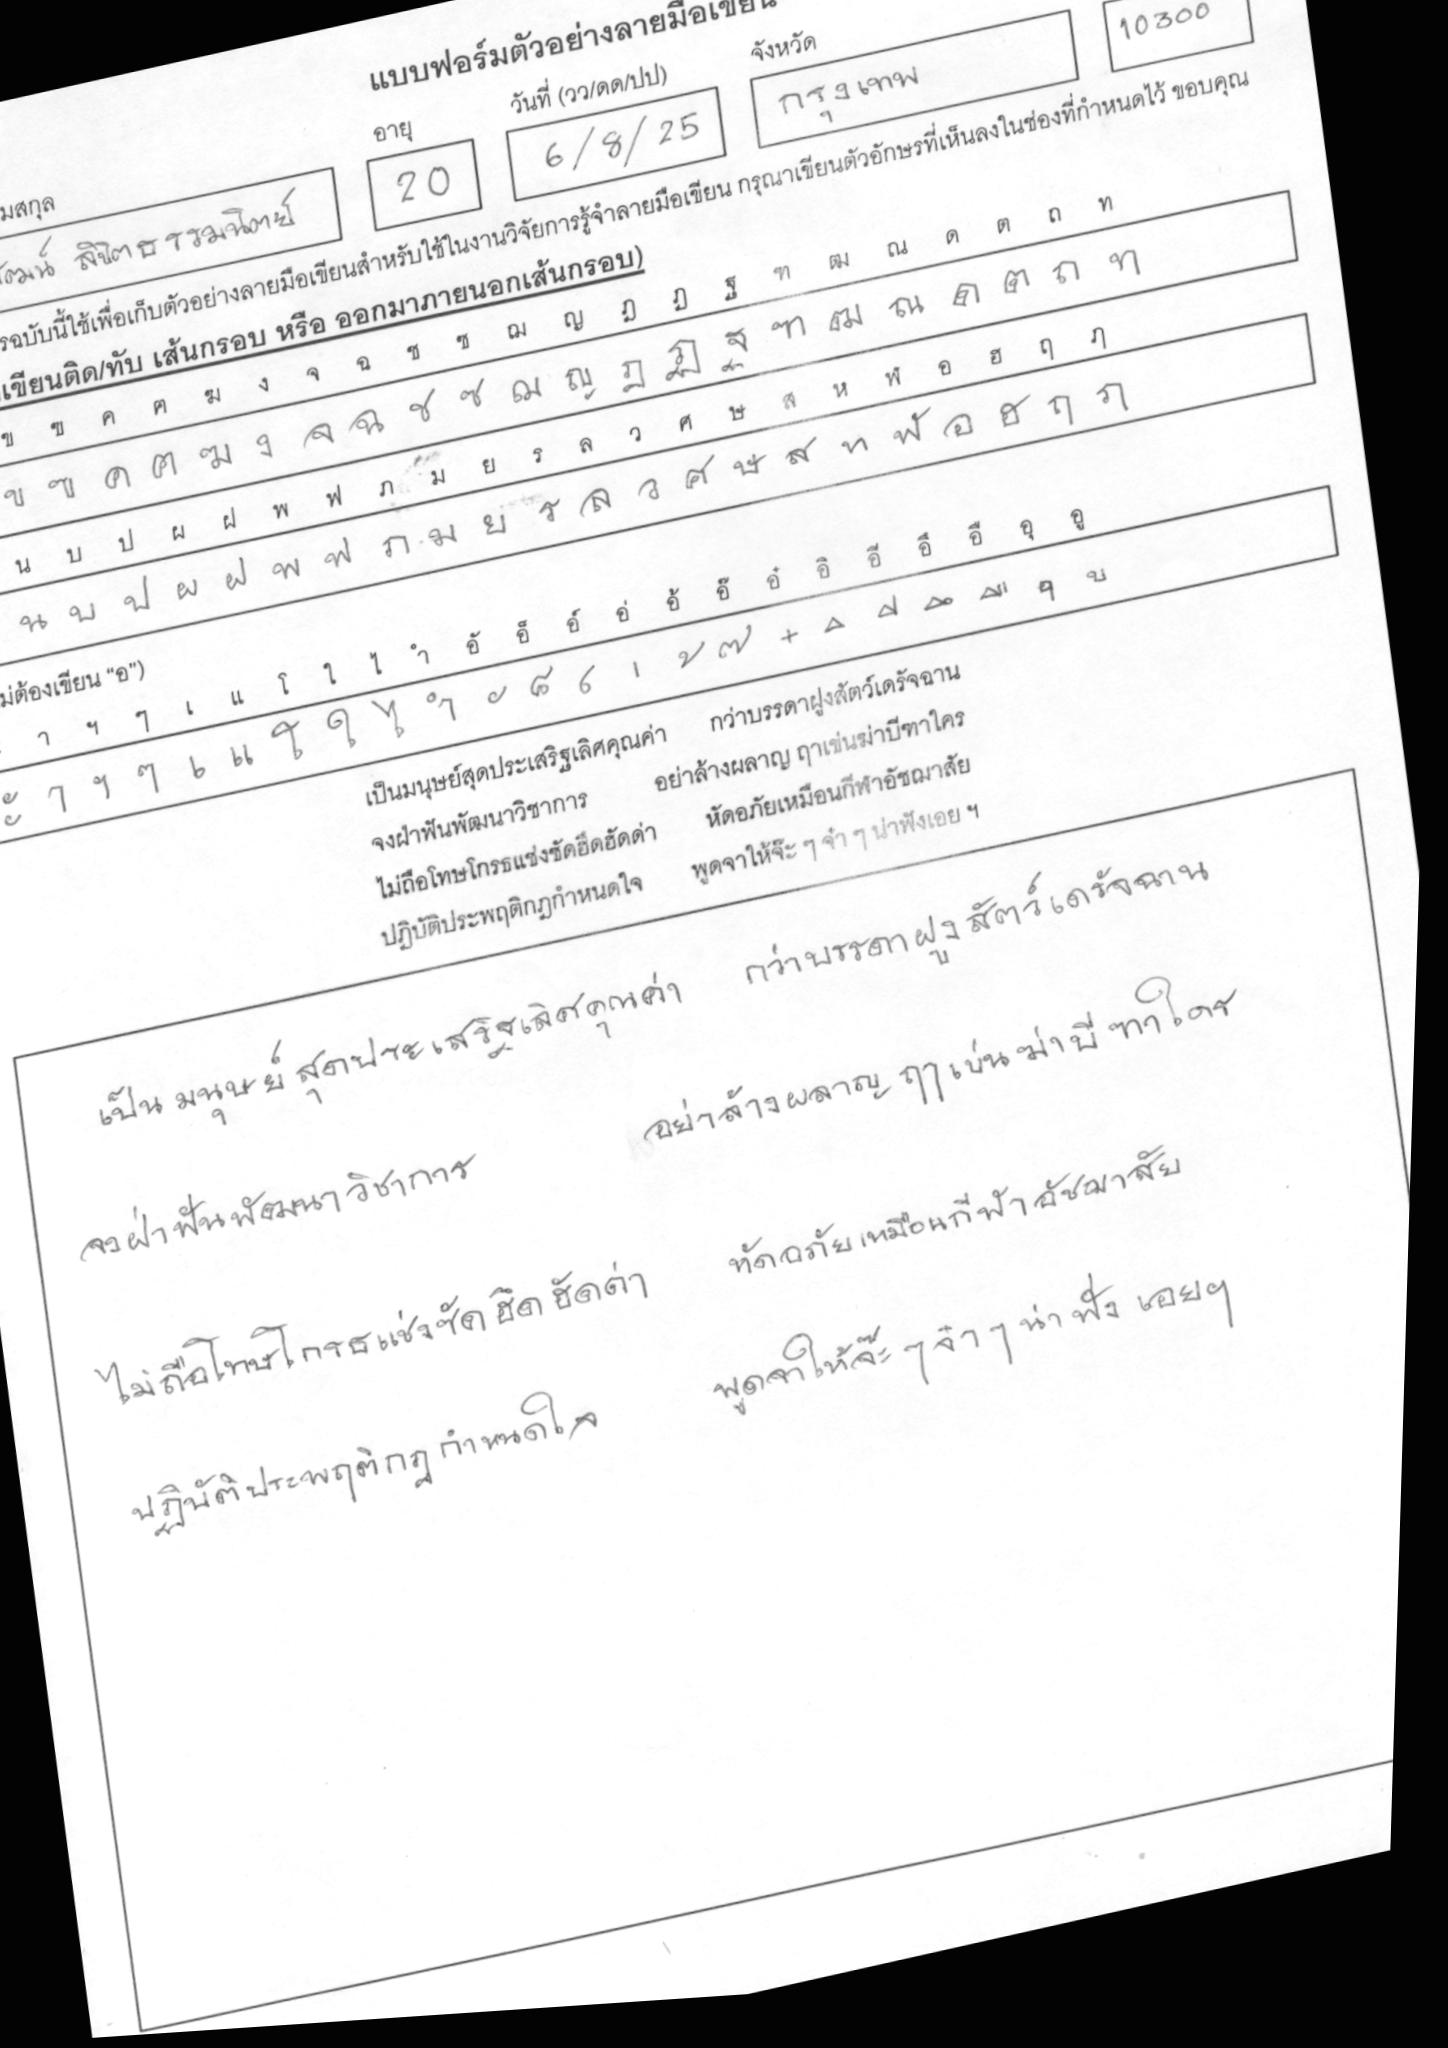 แบบฟอร์มตัวอย่างลายมือเขียน
อายุ วันที่ (วว/ดด/ปป) จังหวัด
20 6/8/25 กรุงเทพ 10300
รฉบับนี้ใช้เพื่อเก็บตัวอย่างลายมือเขียนสำหรับใช้ในงานวิจัยการรู้จำลายมือเขียน กรุณาเขียนตัวอักษรที่เห็นลงในช่องที่กำหนดไว้ ขอบคุณ
เขียนติด/ทับ เส้นกรอบ หรือ ออกมาภายนอกเส้นกรอบ)
ข ฃ ค ฅ ฆ ง จ ฉ ช ซ ฌ ญ ฎ ฏ ฐ ฑ ฒ ณ ด ต ถ ท
ข ฃ ค ฅ ฆ ง จ ฉ ช ซ ฌ ญ ฎ ฏ ฐ ฑ ฒ ณ ด ต ถ ท
น บ ป ผ ฝ พ ฟ ภ ม ย ร ล ว ศ ษ ส ห ฬ อ ฮ ฤ ฦ
น บ ป ผ ฝ พ ฟ ภ ม ย ร ล ว ศ ษ ส ห ฬ อ ฮ ฤ ฦ
ม่ต้องเขียน “อ”)
า ฯ ๆ เ แ โ ใ ไ ำ อั อ็ อ์ อ่ อ้ อ๊ อ๋ อิ อี อึ อื อุ อู
ะ า ฯ ๆ เ แ โ ใ ไ ำ ั ็ ์ ่ ้ ๊ ๋ ิ ี ึ ื ุ ู
เป็นมนุษย์สุดประเสริฐเลิศคุณค่า กว่าบรรดาฝูงสัตว์เดรัจฉาน
จงฝ่าฟันพัฒนาวิชาการ อย่าล้างผลาญ ฤๅเข่นฆ่าบีฑาใคร
ไม่ถือโทษโกรธแช่งซัดฮึดฮัดด่า หัดอภัยเหมือนกีฬาอัชฌาสัย
ปฏิบัติประพฤติกฎกำหนดใจ พูดจาให้จ๊ะ ๆ จ๋า ๆ น่าฟังเอย ฯ
เป็นมนุษย์สุดประเสริฐเลิศคุณค่า กว่าบรรดาฝูงสัตว์เดรัจฉาน
จงฝ่าฟันพัฒนาวิชาการ อย่าล้างผลาญ ฤๅเข่นฆ่าบีฑาใคร
ไม่ถือโทษโกรธแช่งซัดฮึดฮัดด่า หัดอภัยเหมือนกีฬาอัชฌาสัย
ปฏิบัติประพฤติกฎกำหนดใจ พูดจาให้จ๊ะ ๆ จ๋า ๆ น่าฟังเอยฯ